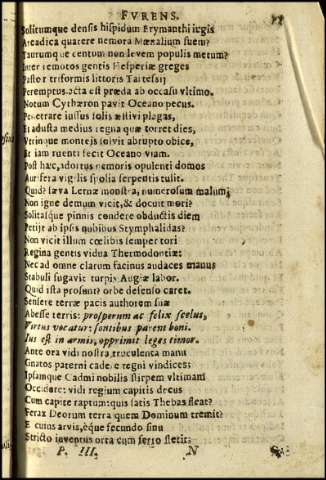 FVRENS.
Solitumque densis hispidum Erymanthi iugis
Arcadica quatere nemora Mænalium suem?
Taurumque centum non levem populis metum?
Inter remotos gentis Hesperiæ greges
Pastor triformis littoris Tartessij
Peremptus: acta est præda ab occasu vltimo.
Notum Cythæron pavit Oceano pecus.
Penetrare iussus solis æstivi plagas,
Et adusta medius regna quæ torret dies,
Vtrinque montes solvit abrupto obice,
Et iam ruenti fecit Oceano viam.
Post hæc, adortus nemoris opulenti domos
Aurifera vigilis spolia serpentis tulit.
Quid? sæva Lernæ monstra, numerosum malum,
Non igne demum vicit, & docuit mori?
Solitasque pinnis condere obductis diem
Petijt ab ipsis nubibus Stymphalidas?
Non vicit illum cœlibis semper tori
Regina gentis vidua Thermodontiæ:
Nec ad omne clarum facinus audaces manus
Stabuli fugavit turpis Augiæ labor.
Quid ista prosunt? orbe defenso caret.
Sensere terræ pacis authorem suæ
Abesse terris: prosperum ac felix scelus,
Virtus vocatur: sontibus parent boni.
Ius est in armis, opprimit leges timor.
Ante ora vidi nostra truculenta manu
Gnatos paterni cadere regni vindices:
Ipsumque Cadmi nobilis stirpem vltimam
Occidere: vidi regium capitis decus
Cum capite raptum: quis satis Thebas fleat?
Ferax Deorum terra quem Dominum tremit?
E cuius arvis, èque fecundo sinu
Stricto iuventus orta cum ferro stetit:
P. III. N